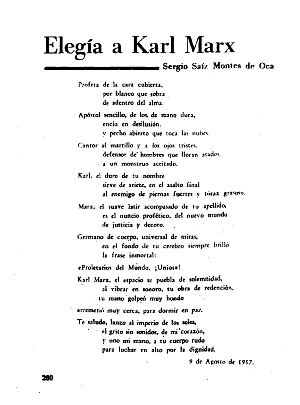 Elegía a Karl Marx
Sergio Saíz Montes de Oca
Profeta de la cara cubierta,
por blanco que sobra
de adentro del alma.
Apóstol sencillo, de los de mano dura,
encía en desilusión,
y pecho abierto que toca las nubes.
Cantor al martillo y a los ojos tristes,
defensor de hombres que lloran atados
a un monstruo aceitado.
Karl, el duro de tu nombre
sirve de ariete, en el asalto final
al enemigo de piernas fuertes y tórax grasoso.
Marx, el suave latir acompasado de tu apellido,
es el nuncio profético, del nuevo mundo
de justicia y decoro.
Germano de cuerpo, universal de miras,
en el fondo de tu cerebro siempre brilló
la frase inmortal:
«Proletarios del Mundo, ¡Uníos»!
Karl Marx, el espacio se puebla de solemnidad,
al vibrar en sonoro, tu obra de redención,
tu mano golpeó muy hondo
arremetió muy cerca, para dormir en paz.
Te saludo, lanzo al imperio de los soles,
el grito sin sonidos, de mi corazón,
y uno mi mano, a tu cuerpo rudo
para luchar en alto por la dignidad.
9 de Agosto de 1957.
280